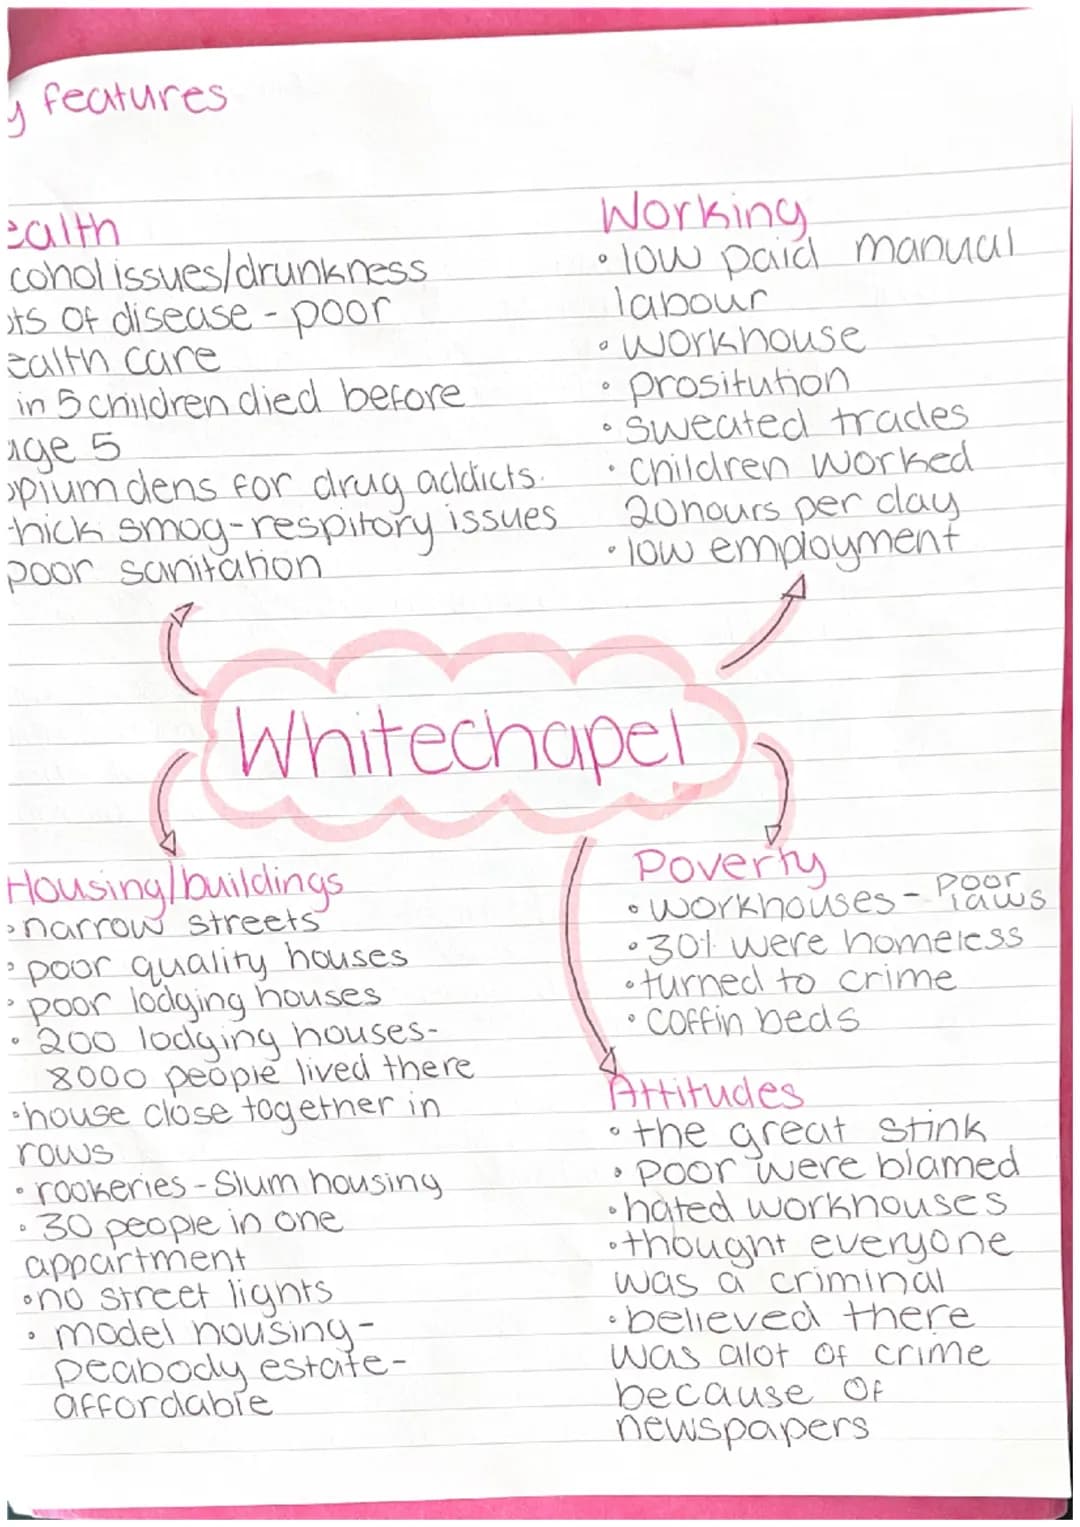 y features
ealth
cohol issues/drunkness
ots of disease - poor
ealth care
in 5 children died before
age 5
opium dens for drug addicts.
thick smog - respitory issues
poor sanitation
Working
• low paid manual
labour
• workhouse
• prositution
• sweated trades
• children worked
20 hours per day
• low employment
Whitechapel
Housing/buildings
• narrow streets
• poor quality houses
• poor lodging houses
• 200 lodging houses-
8000 people lived there
• house close together in
rows
• rookeries - Slum housing
• 30 people in one
appartment
• no street lights
• model housing-
peabody estate-
affordable
Poverty
• workhouses - Poor laws
• 30% were homeless
• turned to crime
• coffin beds
Attitudes
• the great stink
• poor were blamed
• hated workhouses
• thought everyone
was a criminal
• believed there
was alot of crime
because of
newspapers